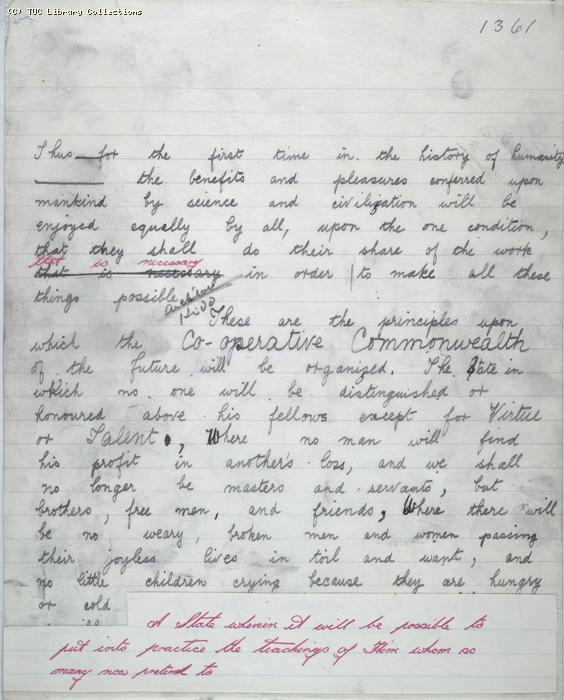 (C) TUC Library Collections
1361
Thus for the first time in the history of humanity
the benefits and pleasures conferred upon
mankind by science and civilization will be
enjoyed equally by all, upon the one condition,
that they shall do their share of the work
that is necessary
that is necessary in order to make all these
things possible.
These are the principles upon
which the Co-operative Commonwealth
of the future will be organized. The State in
which no one will be distinguished or
honoured above his fellows except for Virtue
or Talent, Where no man will find
his profit in another's loss, and we shall
no longer be masters and servants, but
brothers, free men, and friends, Where there will
be no weary, broken men and women passing
their joyless lives in toil and want, and
no little children crying because they are hungry
or cold
A State wherein it will be possible to
put into practice the teachings of Him whom so
many now pretend to